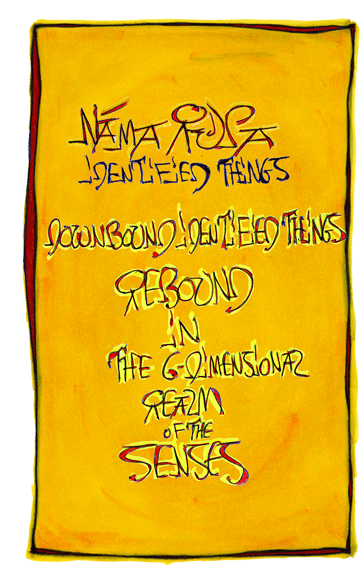 NÁMA RŪPA
IDENTIFIED THINGS
DOWNBOUND IDENTIFIED THINGS
REBOUND
IN
THE 6-DIMENSIONAL
REALM
OF THE
SENSES